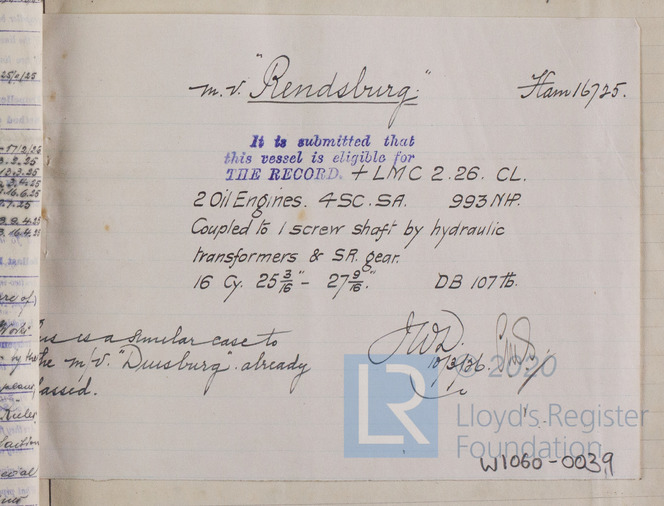 m.v. "Rendsburg."
Ham 16725.
It is submitted that
this vessel is eligible for
THE RECORD. + LMC 2.26. CL.
2 Oil Engines. 4SC. SA. 993 NHP.
Coupled to 1 screw shaft by hydraulic
transformers & SR. gear.
16 Cy. 25 3/16" - 27 9/16". DB 107 lb.
is a similar case to
the m/v. "Duisburg" already
passed.
JWD.
10/3/26.
© 2020
LR
Lloyd's Register
Foundation
W1060-0039